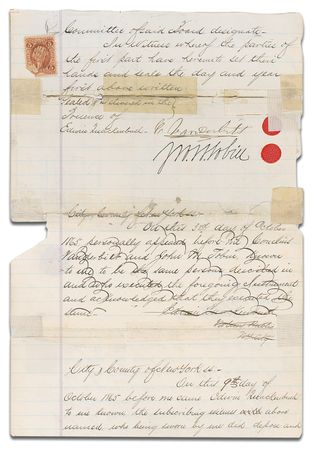 Committee of said Board designate.
In Witness whereof the parties of
the first part have hereunto set their
hands and seals the day and year
first above written
Sealed & Delivered in the
Presence of
Edwin C. Vanderbilt
Jno. M. Tobin
City & County of New York ss.
On this 3rd day of October
1865 personally appeared before me Cornelius
Vanderbilt and John M. Tobin known
to me to be the same persons described in
and who executed the foregoing instrument
and acknowledged that they executed the
same
Notary Public
City & County of New York ss.
On this 9th day of
October 1865 before me came Edwin
to me known the subscribing witness above
named who being sworn by me did depose and